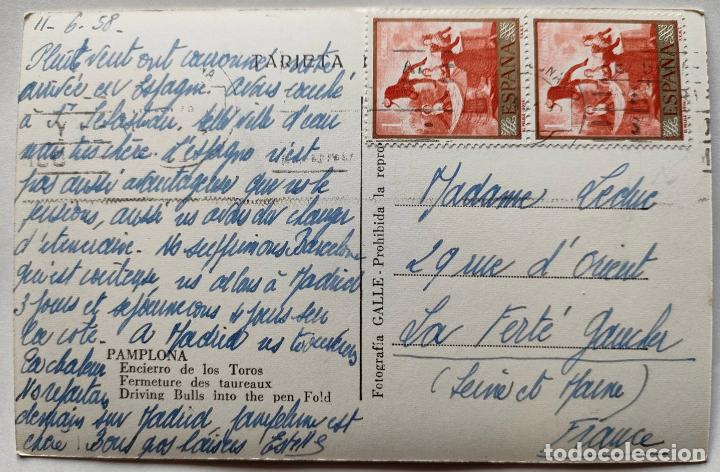 11-6-58-
TARJETA
Pluie vent ont couronné notre
arrivée en Espagne. Avons couché
à St Sebastian. Belle ville d'eau
mais très chère. L'Espagne n'est
pas aussi avantageuse que ns le
pensions, aussi ns avons du changer
d'itinéraire. Ns supprimons Barcelone
qui est couteuse ns allons à Madrid
3 jours et séjournerons 4 jours sur
la cote. A Madrid ns trouverons
la chaleur
Ns repartons
demain sur Madrid. Pampelune est
chère Bons gros baisers
PAMPLONA
Encierro de los Toros
Fermeture des taureaux
Driving Bulls into the pen Fold
Fotografía GALLE - Prohibida la repro
ESPAÑA
ESPAÑA
Madame Leduc
29 rue d'Orient
La Ferté Gaucher
(Seine et Marne)
France
todocoleccion.net